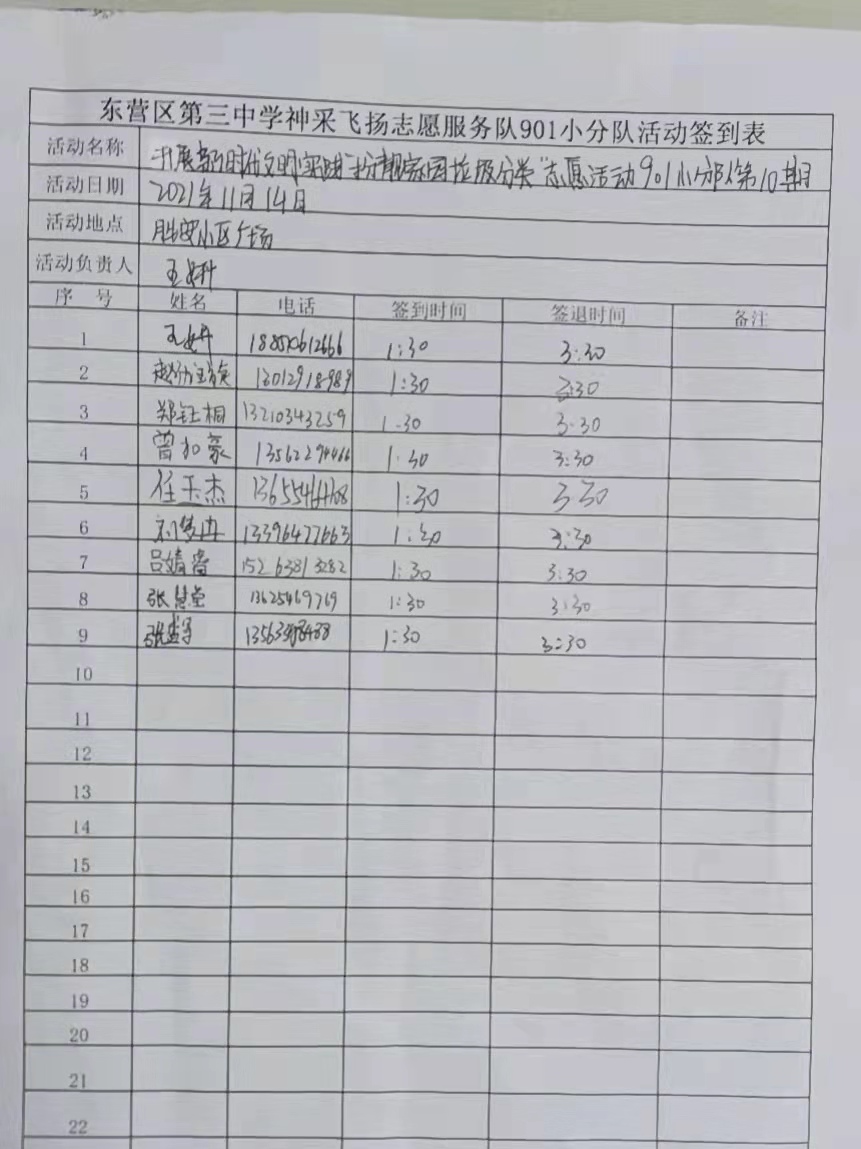 东营区第三中学神采飞扬志愿服务队901小分队活动签到表
活动名称 开展新时代文明实践"扮靓家园垃圾分类"志愿活动901小分队第10期
活动日期 2021年11月14日
活动地点 小区广场
活动负责人 王
序 号 姓名 电话 签到时间 签退时间 备注
1 王 1:30 3:30
2 赵 1:30 3:30
3 郑钰桐 13210343259 1:30 3:30
4 曾加豪 13562294466 1:30 3:30
5 任玉杰 1:30 3:30
6 刘梦冉 13396427663 1:30 3:30
7 吕婧 15263813282 1:30 3:30
8 张慧莹 13625469769 1:30 3:30
9 张 1:30 3:30
10
11
12
13
14
15
16
17
18
19
20
21
22